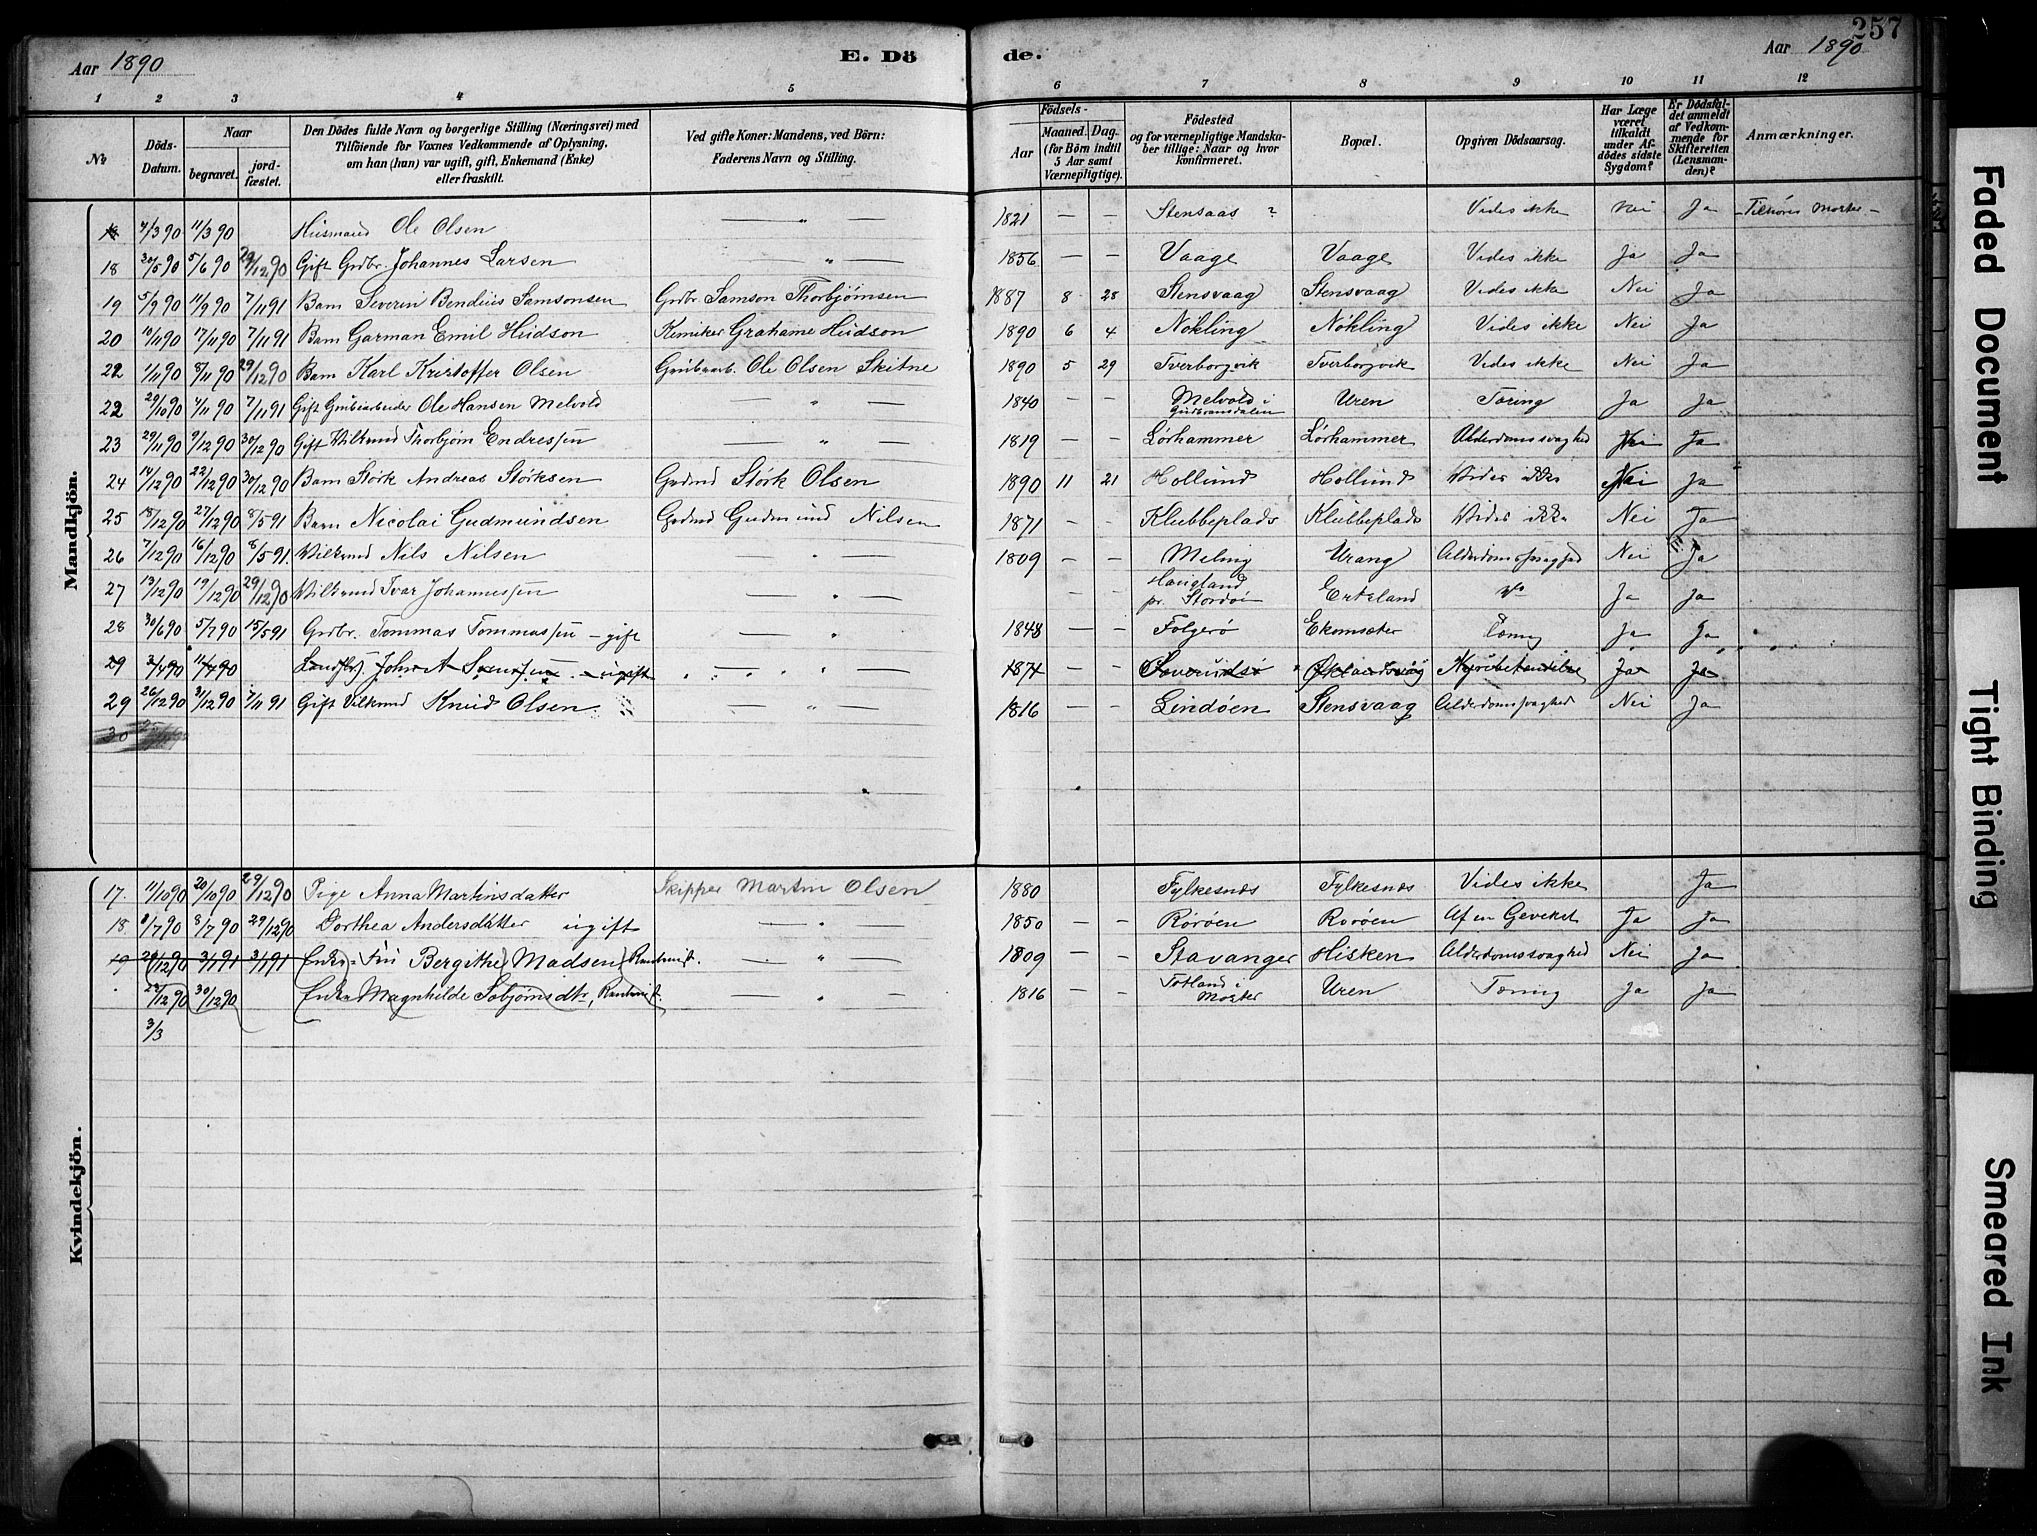 257
Aar 1890 E. Dö de. Aar 1890
1 2 3 4 5 6 7 8 9 10 11 12
No
Döds-Datum.
Naar
begravet. jordfæstet.
Den Dödes fulde Navn og borgerlige Stilling (Næringsvei) med Tilföiende for Voxnes Vedkommende af Oplysning, om han (hun) var ugift, gift, Enkemand (Enke) eller fraskilt.
Ved gifte Koner: Mandens, ved Börn: Faderens Navn og Stilling.
Födsels-
Aar Maaned. Dag. (for Börn indtil 5 Aar samt Værnepligtige).
Födested og for værnepligtige Mandskaber tillige: Naar og hvor konfirmeret.
Bopæl.
Opgiven Dödsaarsag.
Har Læge været tilkaldt under Afdödes sidste Sygdom?
Er Dödsfaldet anmeldt af Vedkommende for Skifteretten (Lensmanden)?
Anmærkninger.
Mandkjön.
4/3 90 11/3 90 Husmand Ole Olsen — " — 1821 — — Stensaas ? Vides ikke Nei Ja
18 30/5 90 5/6 90 29/12 90 Gift Grdbr. Johannes Larsen — " — 1856 — — Vaage Vaage Vides ikke Ja Ja
19 5/9 90 11/9 90 7/11 91 Barn Severin Bendius Samsonsen Grdbr. Samson Thorbjørnsen 1887 8 28 Stensvaag Stensvaag Vides ikke Nei Ja
20 10/11 90 17/11 90 7/11 91 Barn Garman Emil Hudson Kemiker Grahame Hudson 1890 6 4 Nökling Nökling Vides ikke Nei Ja
22 1/11 90 8/11 90 29/12 90 Barn Karl Kristoffer Olsen Grubearb. Ole Olsen Skitne 1890 5 29 Tverborgvik Tverborgvik Vides ikke Nei Ja
22 29/10 90 4/11 90 7/11 91 Gift Grubearbeider Ole Hansen Melvold — " — 1840 — — Melvold i Gudbransdalen Uren Tæring Ja Ja
23 29/11 90 9/12 90 30/12 90 Gift Vilkmd Thorbjørn Endressen — " — 1819 — — Lørhammer Lørhammer Alderdomssvaghed Nei Ja
24 14/12 90 22/12 90 30/12 90 Barn Størk Andreas Størksen Grdmd Størk Olsen 1890 11 21 Hollund Hollund Vides ikke Nei Ja
25 18/12 90 27/12 90 8/5 91 Barn Nicolai Gudmundsen Grdmd Gudmund Nilsen 1871 — — Klubbeplads Klubbeplads Vides ikke Nei Ja
26 7/12 90 16/12 90 8/5 91. Vilkmd Nils Nilsen — " — 1809 — — Meling Urang Alderdomssvaghed Nei Ja
27 13/12 90 19/12 90 29/12 90 Vilkmd Ivar Johannessen — " — — — Haugland pr. Stordøen Ertsland Do Ja Ja
28 30/6 90 5/7 90 15/5 91 Grdbr. Tommas Tommassen – gift — " — 1848 — — Folgerö Ekornsæter Tæring Ja Ja
29 3/4 90 11/4 90 John A ugift 1874 — — Ja Ja
29 26/12 90 31/12 90 7/11 91 Gift Vilkmd Knud Olsen — " — 1816 — — Lindøen Stensvaag Alderdomssvaghed Nei Ja
30
Kvindekjön.
17. 11/10 90 20/10 90 29/12 90 Pige Anna Martinsdatter Skipper Martin Olsen 1880 Fylkesnæs Fylkesnæs Vides ikke Ja
18. 1/7 90 8/7 90 29/12 90 Dorthea Andersdatter ugift — " — 1850 — — Rørøen Rørøen Af en Gevekst Ja Ja
19 /12 90 3/1 91 3/1 91 Enke Siri Bergithe Madsen — " — 1809 — — Stavanger Hisken Alderdomssvaghed Nei Ja
/12 90 30/12 90 Enke Magnhilde Sobjørnsdtr, — " — 1816 — — Totland i Moster Uren Tæring Ja Ja
3/3
Faded Document
Tight Binding
Smeared Ink